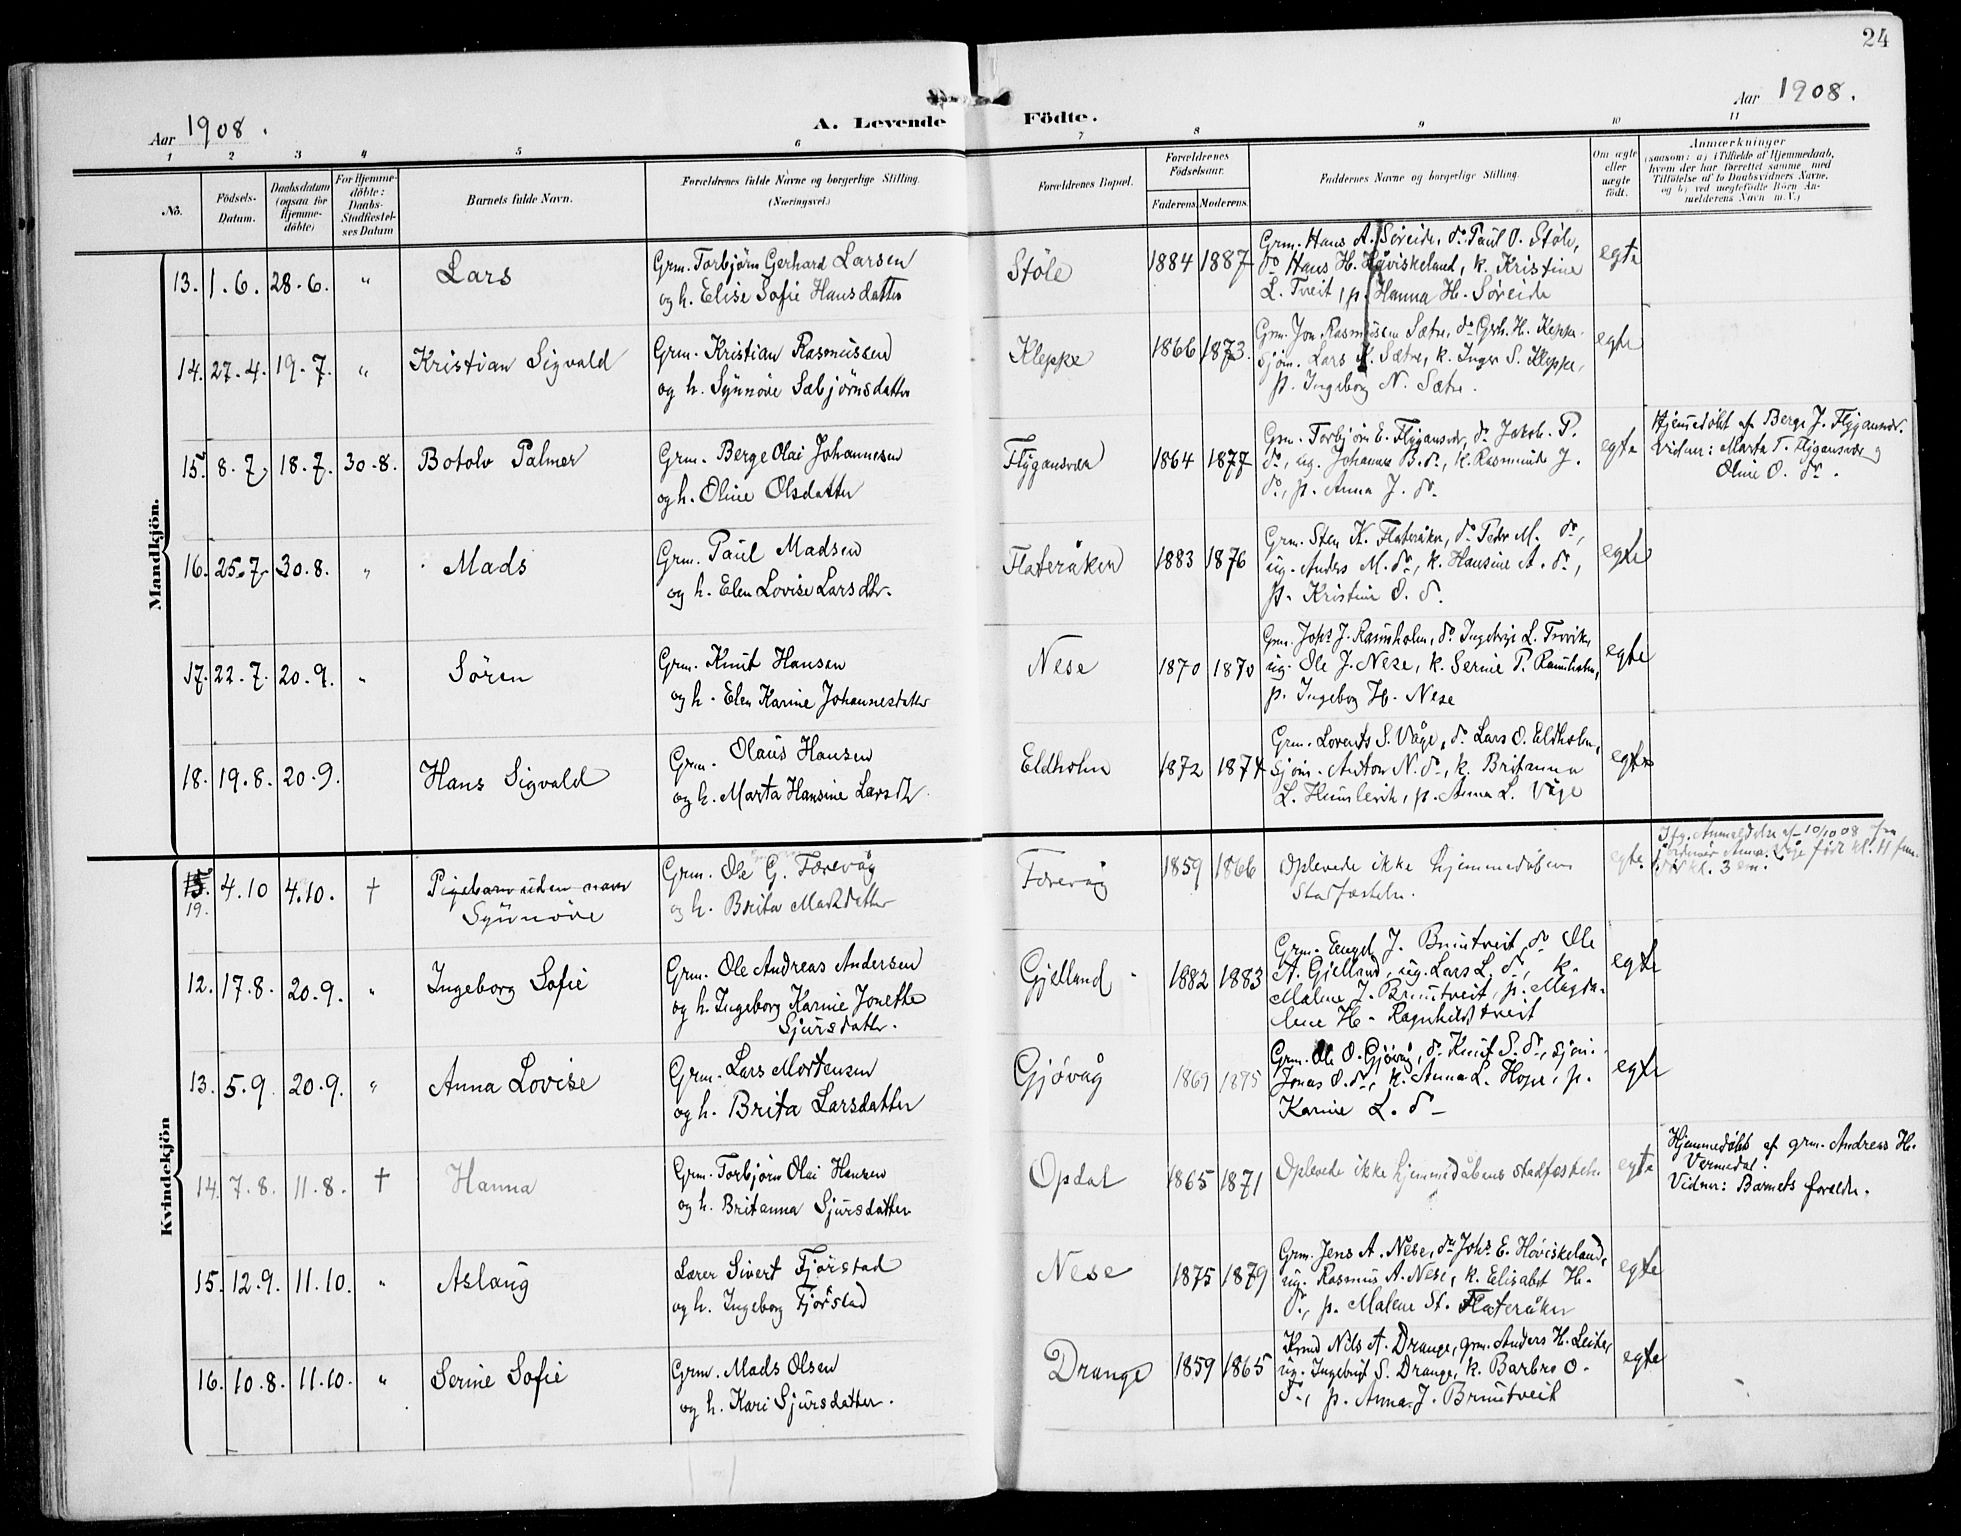 24
Aar 1908.
A. Levende Födte.
Aar 1908.
1 2 3 4 5 6 7 8 9 10 11
No.
Födsels-Datum.
Daabsdatum (ogsaa for Hjemme-döbte)
For Hjemme-döbte: Daabs-Stadfæstel-ses Datum
Barnets fulde Navn.
Forældrenes fulde Navne og borgerlige Stilling.
(Næringsvei.)
Forældrenes Bopæl.
Forældrenes Födselsaar.
Faderens. Moderens.
Faddernes Navne og borgerlige Stilling.
Om ægte eller uægte födt.
Anmærkninger
(saasom: a) i Tilfælde af Hjemmedaab,
hvem der har forrettet samme, med
Tilföielse af to Daabsvidners Navne,
og b) ved uegtefödte Börn An-
melderens Navn m.V.)
Mandkjön.
13. 1.6. 28.6. " Lars
Grm. Torbjørn Gerhard Larsen
og h. Elise Sofie Hansdatter
Støle 1884 1887
Grm. Hans A. Søreide, do Paul O. Støle,
do Hans H. Høviskeland, k. Kristine
L. Tveit, p. Hanna H. Søreide
egte
14. 27.4. 19.7. " Kristian Sigvald
Grm. Kristian Rasmussen
og h. Synnøve Sæbjørnsdatter
Kleppe 1866 1873.
Grm. Jon Rasmussen Sætre, do H. Kleppe.
Sjøm. Lars Sætre, k. Inger S. Kleppe,
p. Ingeborg N. Sætre.
egte
15. 8.7. 18.7. 30.8. Botolv Palmer
Grm. Berge Olai Johannesen
og h. Oline Olsdatter
Flygansvær 1864 1877
Grm. Torbjørn E. Flygansvær, do Jakob P.
do, ug. Johanna B. do, k. Rasmunde J.
do, p. Anna J. do
egte
Hjemedøbt af Berge J. Flygansvær.
Vidner: Marta T. Flygansvær og
Oline O. do.
16. 25.7. 30.8. " Mads
Grm. Paul Madsen
og h. Elen Lovise Larsdtr.
Flateråken 1883 1876
Grm. Sten K. Flateråker, do Peder M. do,
ug. Anders M. do, k. Hansine A. do,
p. Kristine O. do.
egte
17. 22.7. 20.9. " Søren
Grm. Knut Hansen
og h. Elen Karine Johannesdatter
Nese 1870 1870
Grm. Johs J. Ramsholm, do L. Trovik,
ug. Ole J. Nese, k. Serine P. Ramsholm,
p. Ingeborg H. Nese
egte
18. 19.8. 20.9. Hans Sigvald
Grm. Olaus Hansen
og h. Marta Hansine Larsdtr.
Eldholm 1872 1874
Grm. Lorents S. Våge, do Lars O. Eldholm,
Sjøm. Anton N. do, k. Britanna
L. Humlevik, p. Anna L. Våge
egte
Kvindekjön
15. 19. 4.10 4.10. † Pigebarn uden navn
Synnøve
Grm. Ole G. Forevåg
og h. Brita Marksdatter
Forevåg 1859 1866
Oplevede ikke hjemmedåbens
Stadfæstelse.
egte.
Ifg. Anmeldelse af 10/10 08 fra
jordmor Anna Våge født kl. 11 fm.
død kl. 3 em.
12. 17.8. 20.9. " Ingeborg Sofie
Grm. Ole Andreas Andersen
og h. Ingeborg Karine Jonette
Sjursdatter.
Gjelland 1882 1883
Grm. Engel J. Bruntveit, do Ole
A. Gjelland, ug. Lars L. do, k.
Malene J. Bruntveit, p. Magda-
lene H. Ragnhildstveit
egte
13. 5.9. 20.9. " Anna Lovise
Grm. Lars Mortensen
og h. Brita Larsdatter
Gjøvåg 1869 1875
Grm. Ole O. Gjøvåg, do Knut S. do, sjøm.
Jonas O. do, k. Anna L. Hope, p.
Karine L. do
egte
14. 7.8. 11.8. † Hanna
Grm. Torbjørn Olai Hansen
og h. Britanna Sjursdatter
Opdal 1865 1871
Oplevede ikke hjemmedåbens stadfæstelse
egte
Hjemmedøbt af grm. Andreas H.
Vermedal.
Vidner: Barnets forældre.
15. 12.9. 11.10. " Aslaug
Lærer Sivert Fjørstad
og h. Ingeborg Fjørstad
Nese 1875 1879
Grm. Jens A. Nese, do Johs E. Høviskeland,
ug. Rasmus A. Nese, k. Elisabet H.
do, p. Malene St. Flateråker
egte
16. 10.8. 11.10. " Serine Sofie
Grm. Mads Olsen
og h. Kari Sjursdatter.
Drange 1859 1865
Nils A. Drange, grm. Anders H. Leite,
ug. Ingebrigt S. Drange, k. Barbro O.
do, p. Anna J. Bruntveit
egte